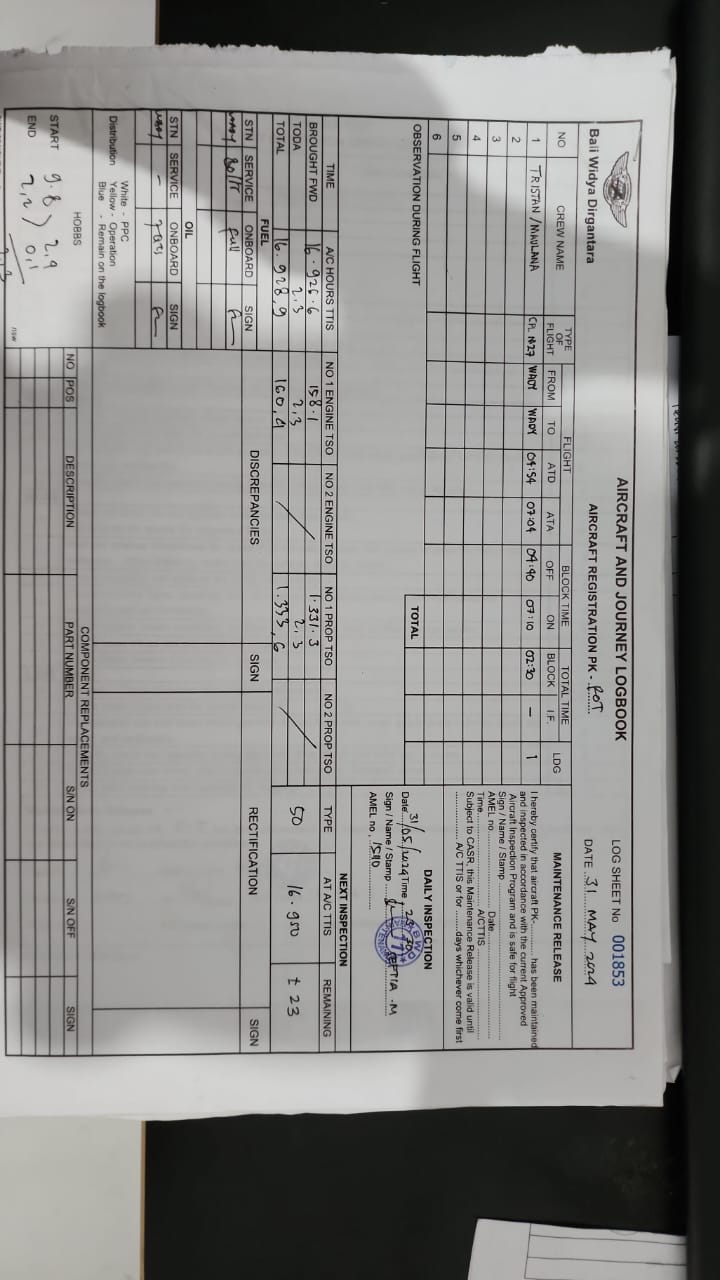 Bali Widya Dirgantara
AIRCRAFT AND JOURNEY LOGBOOK
AIRCRAFT REGISTRATION PK -
LOG SHEET No 001853
DATE 31 MAY 2024
NO CREW NAME TYPE OF FLIGHT FLIGHT BLOCK TIME TOTAL TIME LDG
FROM TO ATD ATA OFF ON BLOCK I.F.
1 TRISTAN / MAULANA WADY WADY 04:54 07:04 04:40 07:10 02:30 - 1
2
3
4
5
6
TOTAL
OBSERVATION DURING FLIGHT
MAINTENANCE RELEASE
I hereby certify that aircraft PK-........... has been maintained
and inspected in accordance with the current Approved
Aircraft Inspection Program and is safe for flight
Sign / Name / Stamp
AMEL no. Date
Time A/CTTIS
Subject to CASR, this Maintenance Release is valid until
A/C TTIS or for ........days whichever come first
DAILY INSPECTION
Date 31/05/2024 Time
Sign / Name / Stamp SEPTIA .M
AMEL no.
TIME A/C HOURS TTIS NO 1 ENGINE TSO NO 2 ENGINE TSO NO 1 PROP TSO NO 2 PROP TSO
BROUGHT FWD 16.926.6 158.1 1.331.3
TODA 2,3 2,3 2,3
TOTAL 16.928,9 160,4 1.333,6
NEXT INSPECTION
TYPE AT A/C TTIS REMAINING
50 16.950 ± 23
FUEL
STN SERVICE ONBOARD SIGN
full
OIL
STN SERVICE ONBOARD SIGN
-
DISCREPANCIES SIGN RECTIFICATION SIGN
Distribution : White - PPC
Yellow - Operation
Blue - Remain on the logbook
HOBBS
START 9.8
END 2,2
0,1
COMPONENT REPLACEMENTS
NO POS DESCRIPTION PART NUMBER S/N ON S/N OFF SIGN